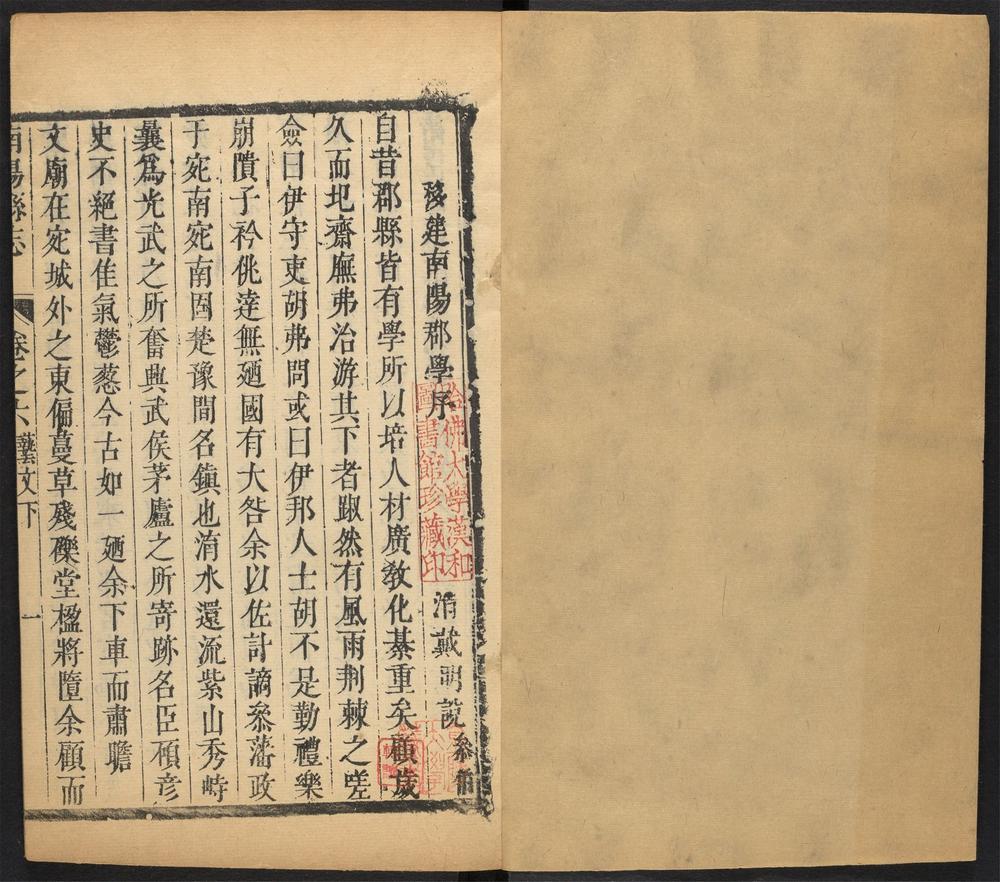 移建南陽郡學序 清戴明說 叅備
自昔郡縣皆有學所以培人材廣敎化綦重矣顧歲
久而圯齋廡弗治游其下者踧然有風雨荆棘之嗟
僉曰伊守吏胡弗問或曰伊邦人士胡不是勤禮樂
崩隤子衿佻達無廼國有大咎余以佐計謫叅藩政
于宛南宛南固楚豫間名鎮也淯水還流紫山秀峙
曩爲光武之所奮興武侯茅廬之所寄跡名臣碩彦
史不絕書佳氣鬱葱今古如一廼余下車而肅瞻
文廟在宛城外之東偏蔓草殘礫堂楹將墮余顧而
南陽縣志 卷之六 藝文下 一
哈佛大學漢和
圖書館珍藏印